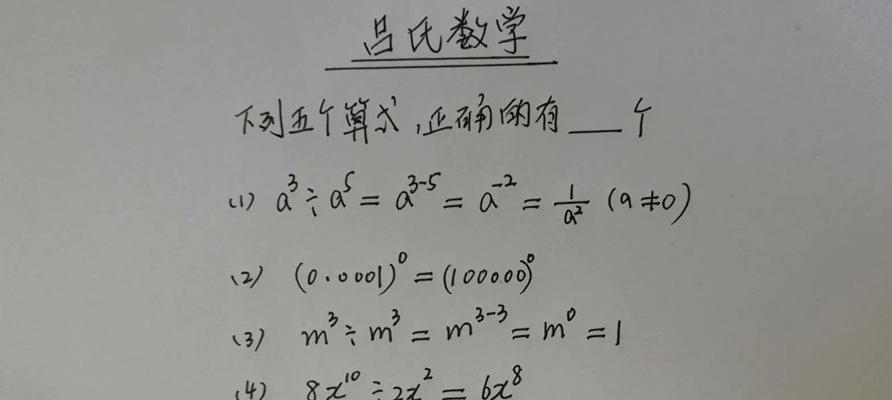 吕氏数学
下列五个算式,正确的有___个
(1) a³÷a⁵=a³⁻⁵=a⁻²=1/a² (a≠0)
(2) (0.0001)⁰=(100000)⁰
(3) m³÷m³=m³⁻³=m⁰=1
(4) 8x¹⁰÷2x²=6x⁸